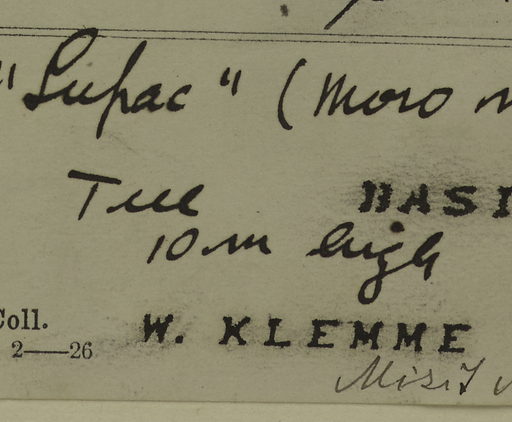 "Lupac" (Moro
Tree BASI
10 m high
Coll. W. KLEMME
2—26